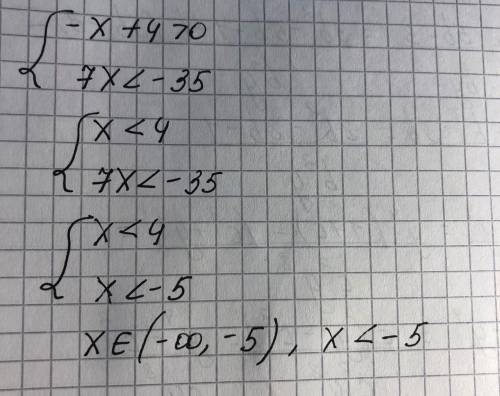 { -x + 4 > 0
7x < -35
{ x < 4
7x < -35
{ x < 4
x < -5
x ∈ (-∞, -5), x < -5